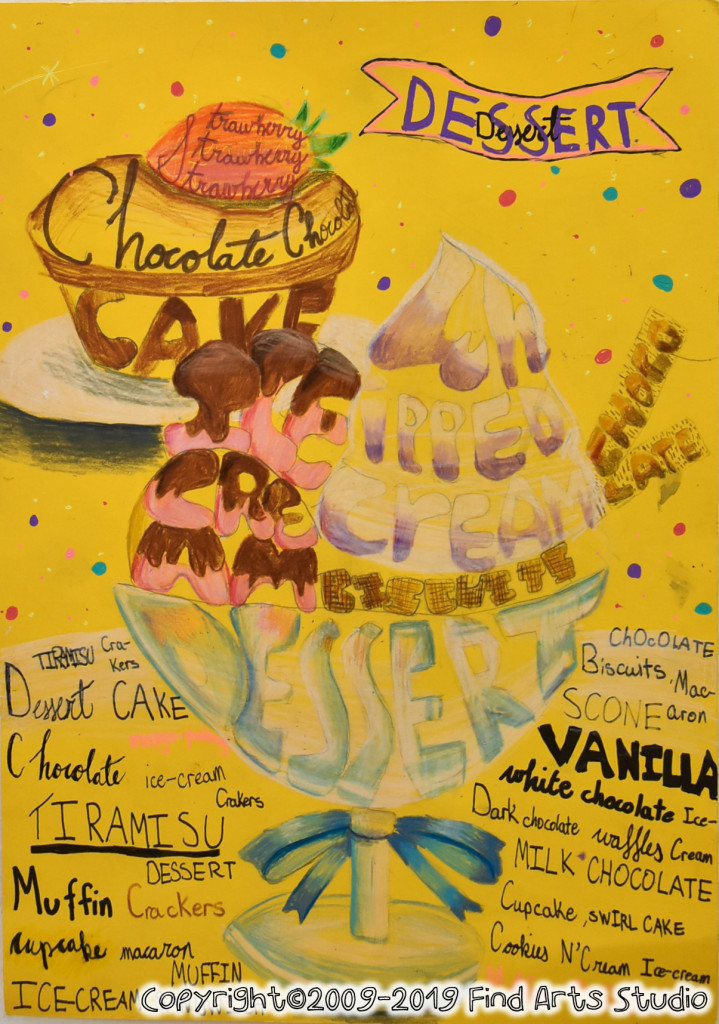 DESSERT
Dessert
Strawberry
Strawberry
Strawberry
Chocolate Chocolat
CAKE
ICE
CREAM
WHIPPED
CREAM
CHOCO
LATE
BISCUITS
DESSERT
TIRAMISU Cra-
kers
Dessert CAKE
Chocolate ice-cream
Crakers
TIRAMISU
DESSERT
Muffin Crackers
cupcake macaron
MUFFIN
ICE-CREAM
ChOcOLATE
Biscuits, Mac-
aron
SCONE
VANILLA
white chocolate Ice-
Cream
Dark chocolate waffles
MILK CHOCOLATE
Cupcake, SWIRL CAKE
Cookies N'Cream Ice-cream
Copyright©2009-2019 Find Arts Studio